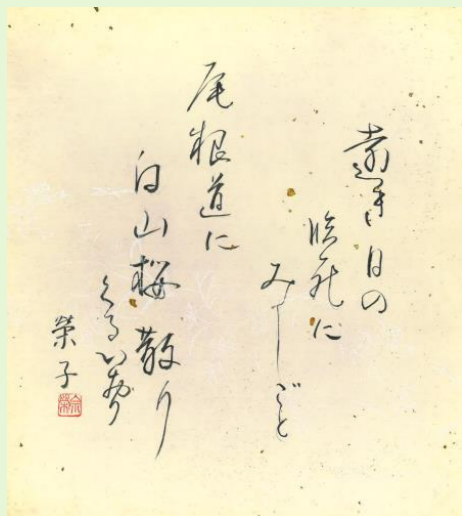 遠き日の
臨死に
みしごと
尾根道に
白山桜散り
くるい
榮子